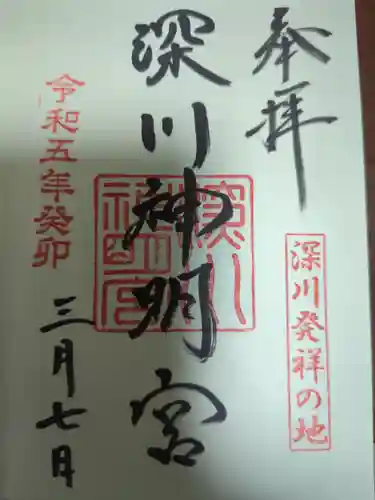 奉拝
深川発祥の地
深川神明宮
深川神明宮
令和五年癸卯
三月七日